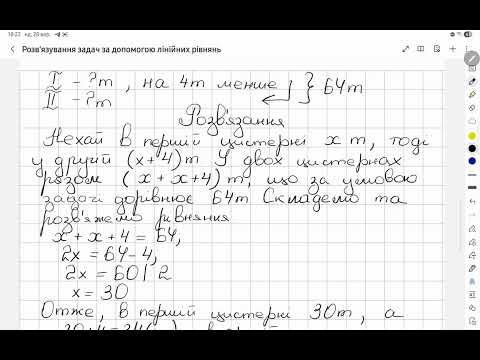 18:23 нд, 28 вер.
Розв'язування задач за допомогою лінійних рівнянь
I - ?т, на 4т менше
64т
II - ?т
Розв'язання
Нехай в першій цистерні x т, тоді
у другій (x+4)т У двох цистернах
разом (x+x+4)т, що за умовою
задачі дорівнює 64т Складемо та
розв'яжемо рівняння
x+x+4=64,
2x=64-4,
2x=60 | 2
x=30
Отже, в першій цистерні 30т, а